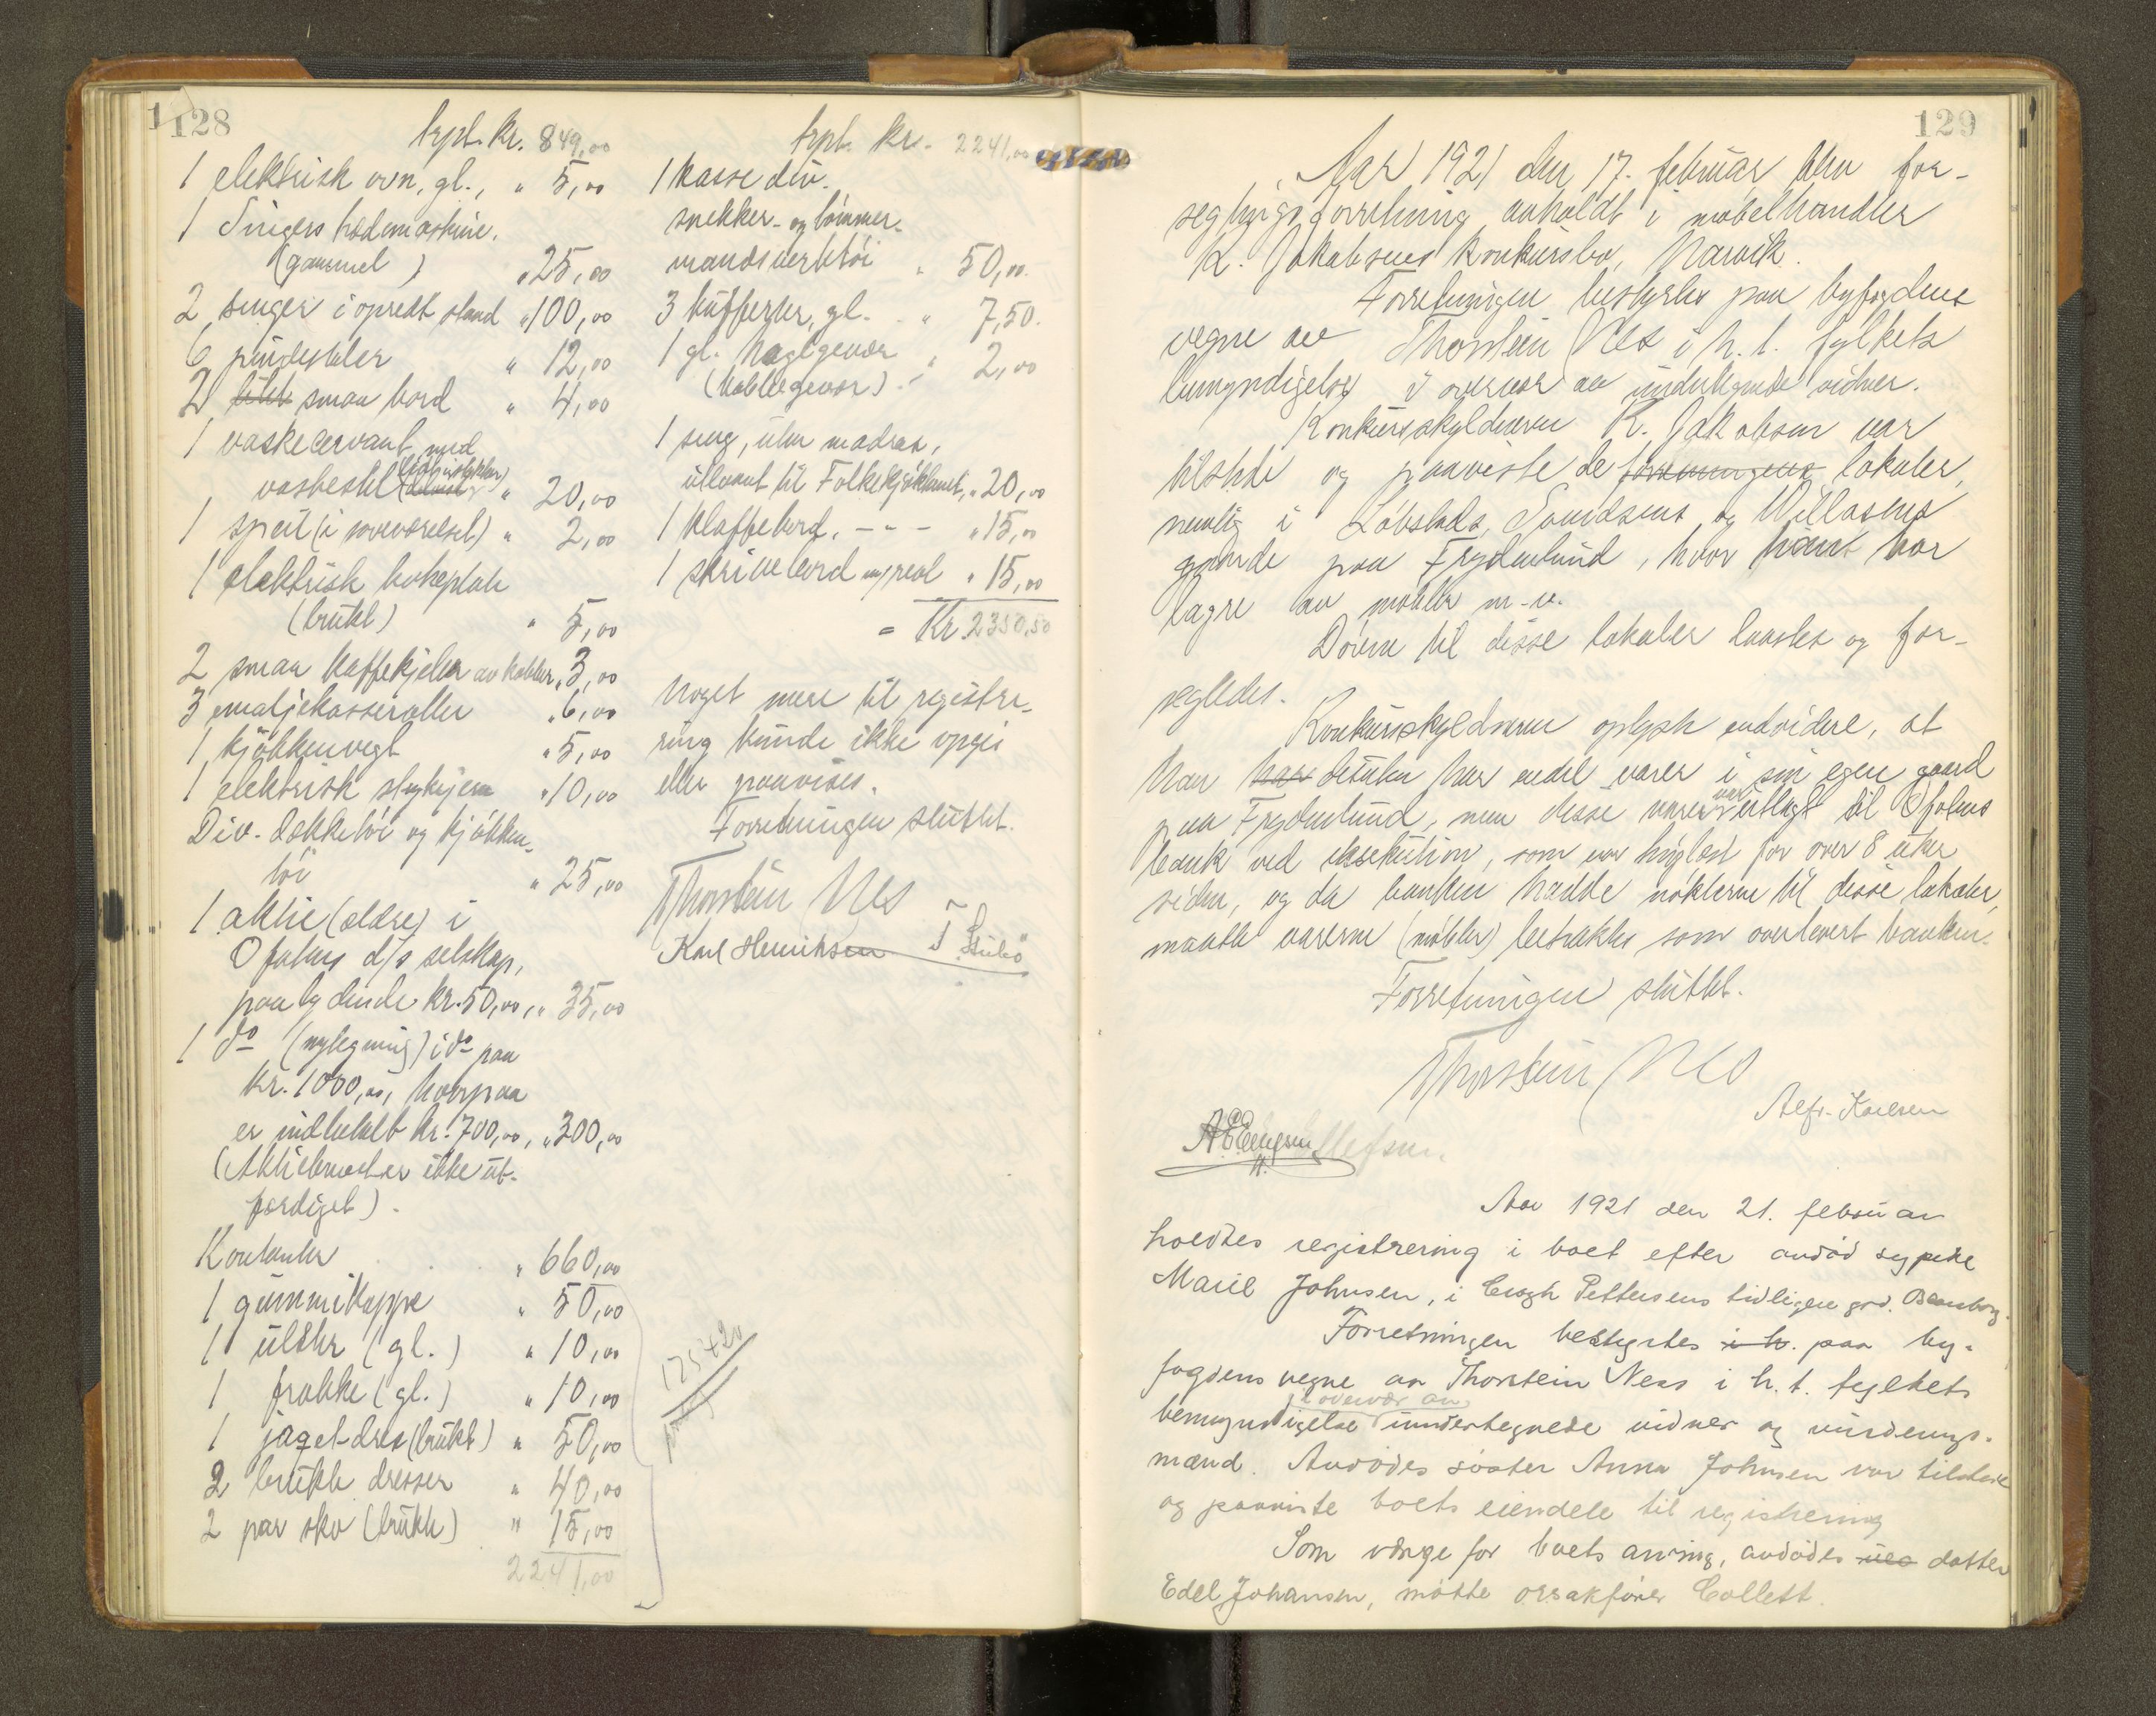 128
trpt. kr. 849,00
1 elektrisk ovn, gl., " 5,00
1 Singers trædemaskine,
(gammel) " 25,00
2 senger i opredt stand " 100,00
6 pindestoler " 12,00
2 litet smaa bord " 4,00
1 vaskeservant med
vaskestel " 20,00
1 speil (i soveværelset) " 2,00
1 elektrisk kokeplate
(brukt) " 5,00
2 smaa kaffekjeler av kobber " 3,00
3 emaljekasseroller " 6,00
1 kjøkkenvegt " 5,00
1 elektrisk strykejern " 10,00
Div. dækketøi og kjøkken-
tøi " 25,00
1 aktie (ældre) i
Ofotens d/s selskap,
paalydende kr. 50,00, " 35,00
1 do (nytegning) i do paa
kr. 1000,00, hvorpaa
er indbetalt kr. 700,00, " 300,00
(Aktiebrevet er ikke ut-
færdiget).
Kontanter " 660,00
1 gummikappe " 50,00
1 ulster (gl.) " 10,00
1 frakke (gl.) " 10,00
1 jaget-dres (brukt) " 50,00
2 brukte dresser " 40,00
2 par sko (brukte) " 15,00
2241,00
trpt. kr. 2241,00
1 kasse div.
snekker- og tømmer-
mandsverktøi " 50,00.
3 kufferter, gl. " 7,50.
1 gl. haglgevær " 2,00
(kobbegevær)
1 seng, uten madras,
utlaant til Folkekjøkkenet, " 20,00
1 klaffebord, - " - " 15,00
1 skrivebord m/ reol " 15,00
= Kr. 2350,50
Noget mere til registre-
ring kunde ikke opgis
eller paavises.
Forretningen sluttet.
Thorstein Nes
Karl Henriksen
129
Aar 1921 den 17. februar blev for-
seglingsforretning avholdt i møbelhandler
K. Jakobsens konkursbo, Narvik.
Forretningen bestyrtes paa byfogdens
vegne av Thorstein Nes i h. t. fylkets
bemyndigelse i overvær av undertegnede vidner.
Konkursskyldneren K. Jakobsen var
tilstede og paaviste de forretningens lokaler,
nemlig i Løbslads, Davidsens og Willasens
gaarde paa Frydenlund, hvor hans har
lagre av møbler m. v.
Døren til disse lokaler laastes og for-
segledes.
Konkursskyldneren oplyste endvidere, at
han har desuten har endel varer i sin egen gaard
paa Frydenlund, men disse varer var utlagt til Ofotens
bank ved eksekution, som var tinglæst for over 8 uker
siden, og da banken hadde nøklerne til disse lokaler,
maatte varerne (møbler) betraktes som overlevert banken.
Forretningen sluttet.
Thorstein Nes
Alfr. Karlsen
Aar 1921 den 21. februar
holdtes registrering i boet efter avdød sypike
Marie Johnsen, i Krogh Pettersens tidligere grd.
Forretningen bestyrtes i h. paa by-
fogdens vegne av Thorstein Ness i h. t. fylkets
bemyndigelse i overvær av undertegnede vidner og vurderings-
mænd. Avdødes søster Anna Johnsen var tilstede
og paaviste boets eiendele til registrering
Som værge for boets arving, avdødes datter
Edel Johansen, møtte orsakfører Collett.